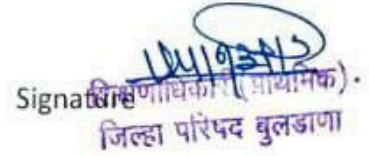 Signature
शिक्षणाधिकारी (प्राथमिक).
जिल्हा परिषद बुलडाणा